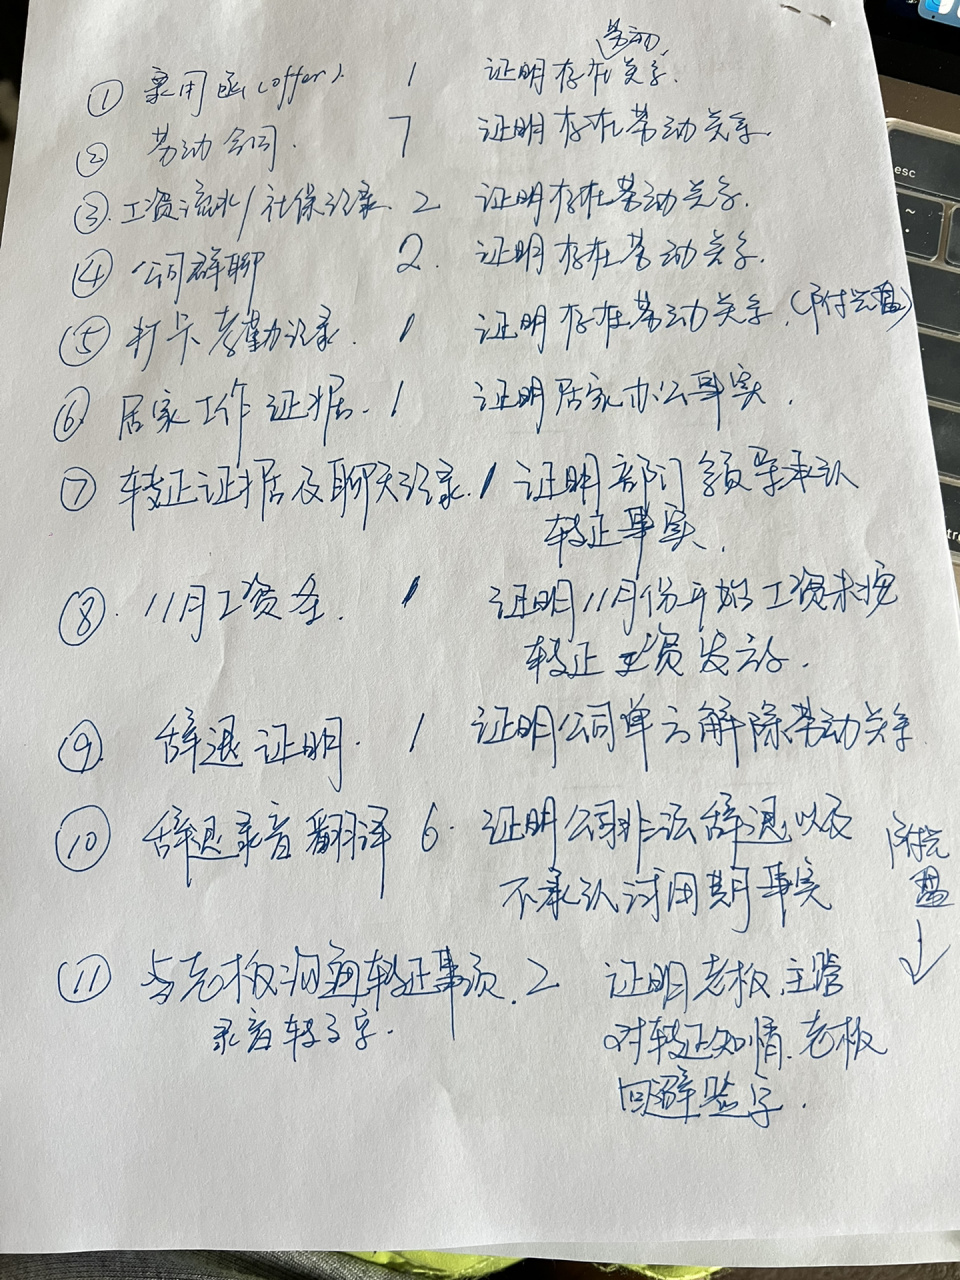 劳动
① 录用函(offer). 1 证明存在关系.
② 劳动合同. 7 证明存在劳动关系.
③ 工资流水/社保记录. 2 证明存在劳动关系.
④ 公司群聊 2. 证明存在劳动关系.
⑤ 打卡考勤记录. 1 证明存在劳动关系.(附光盘)
⑥ 居家工作证据. 1 证明居家办公事实.
⑦ 转正证据及聊天记录. 1 证明部门领导承认
转正事实.
⑧. 11月工资条. 1 证明11月份开始工资未按
转正工资发放.
⑨ 辞退证明. 1 证明公司单方解除劳动关系.
⑩ 辞退录音翻译 6. 证明公司非法辞退以及
不承认试用期事实
附光
盘
↓
⑪ 与老板沟通转正事项. 2 证明老板.主管
录音转文字.
对转正知情.老板
回避签字.
esc
~